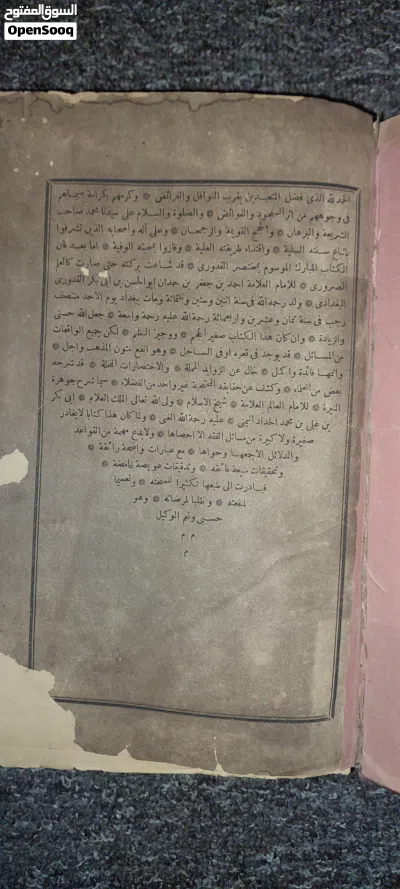 السوق المفتوح
OpenSooq
الحمد لله الذى فضل المتعبدين بقرب النوافل والفرائض * وكرمهم بكرامة سيماهم
فى وجوههم من اثر السجود والفرائض * والصلوة والسلام على سيدنا محمد صاحب
الشريعة والبرهان * والحجج القويمة والرجحان * وعلى آله واصحابه الذين تشرفوا
باتباع سنته السنية * واقتداء طريقته العلية * وفازوا بصحبته الوفية * اما بعد فان
الكتاب المبارك الموسوم بمختصر القدورى * قد شاعت بركته حتى صارت كالعلم
الضرورى * للامام العلامة احمد بن جعفر بن حمدان ابو الحسن بن ابى بكر القدورى
البغدادى * ولد رحمه الله فى سنة اثنين وستين وثلثمائة ومات ببغداد يوم الاحد منتصف
رجب فى سنة ثمان وعشرين واربعمائة رحمة الله عليه رحمة واسعة * جعل الله حسنى
وازيادة * وان كان هذا الكتاب صغير الحجم * ووجيز النظم * لكن جميع الواقعات
من المسائل * قد يوجد فى قعره او فى الساحل * وهو انفع متون المذهب واجل *
واتمها فائدة واكمل * خال عن الزوايد المملة * والاختصارات المخلة * قد شرحه
بعض من العلماء * وكشف عن حقايقه الصحيحة غير واحد من الفضلاء * سيما شرح جوهرة
النيرة * للامام العالم العلامة * شيخ الاسلام * ولى الله تعالى الملك العلام * ابى بكر
بن على بن محمد الحداد اليمنى * عليه رحمة الله الغنى * ولما كان هذا كتابا لا يغادر
صغيرة ولا كبيرة من مسائل الفقه الا احصاها * ولا يدع مهمة من القواعد
والدلائل الا جمعها وحواها * مع عبارات واضحة رائقة *
وتحقيقات منيعة فائقة * وتدقيقات عويصة غامضة *
فبادرت الى طبعها تكثيرا لنفعه * وتعميما
لمنفعته * وطلبا لمرضاته * وهو
حسبى ونعم الوكيل
م م
م